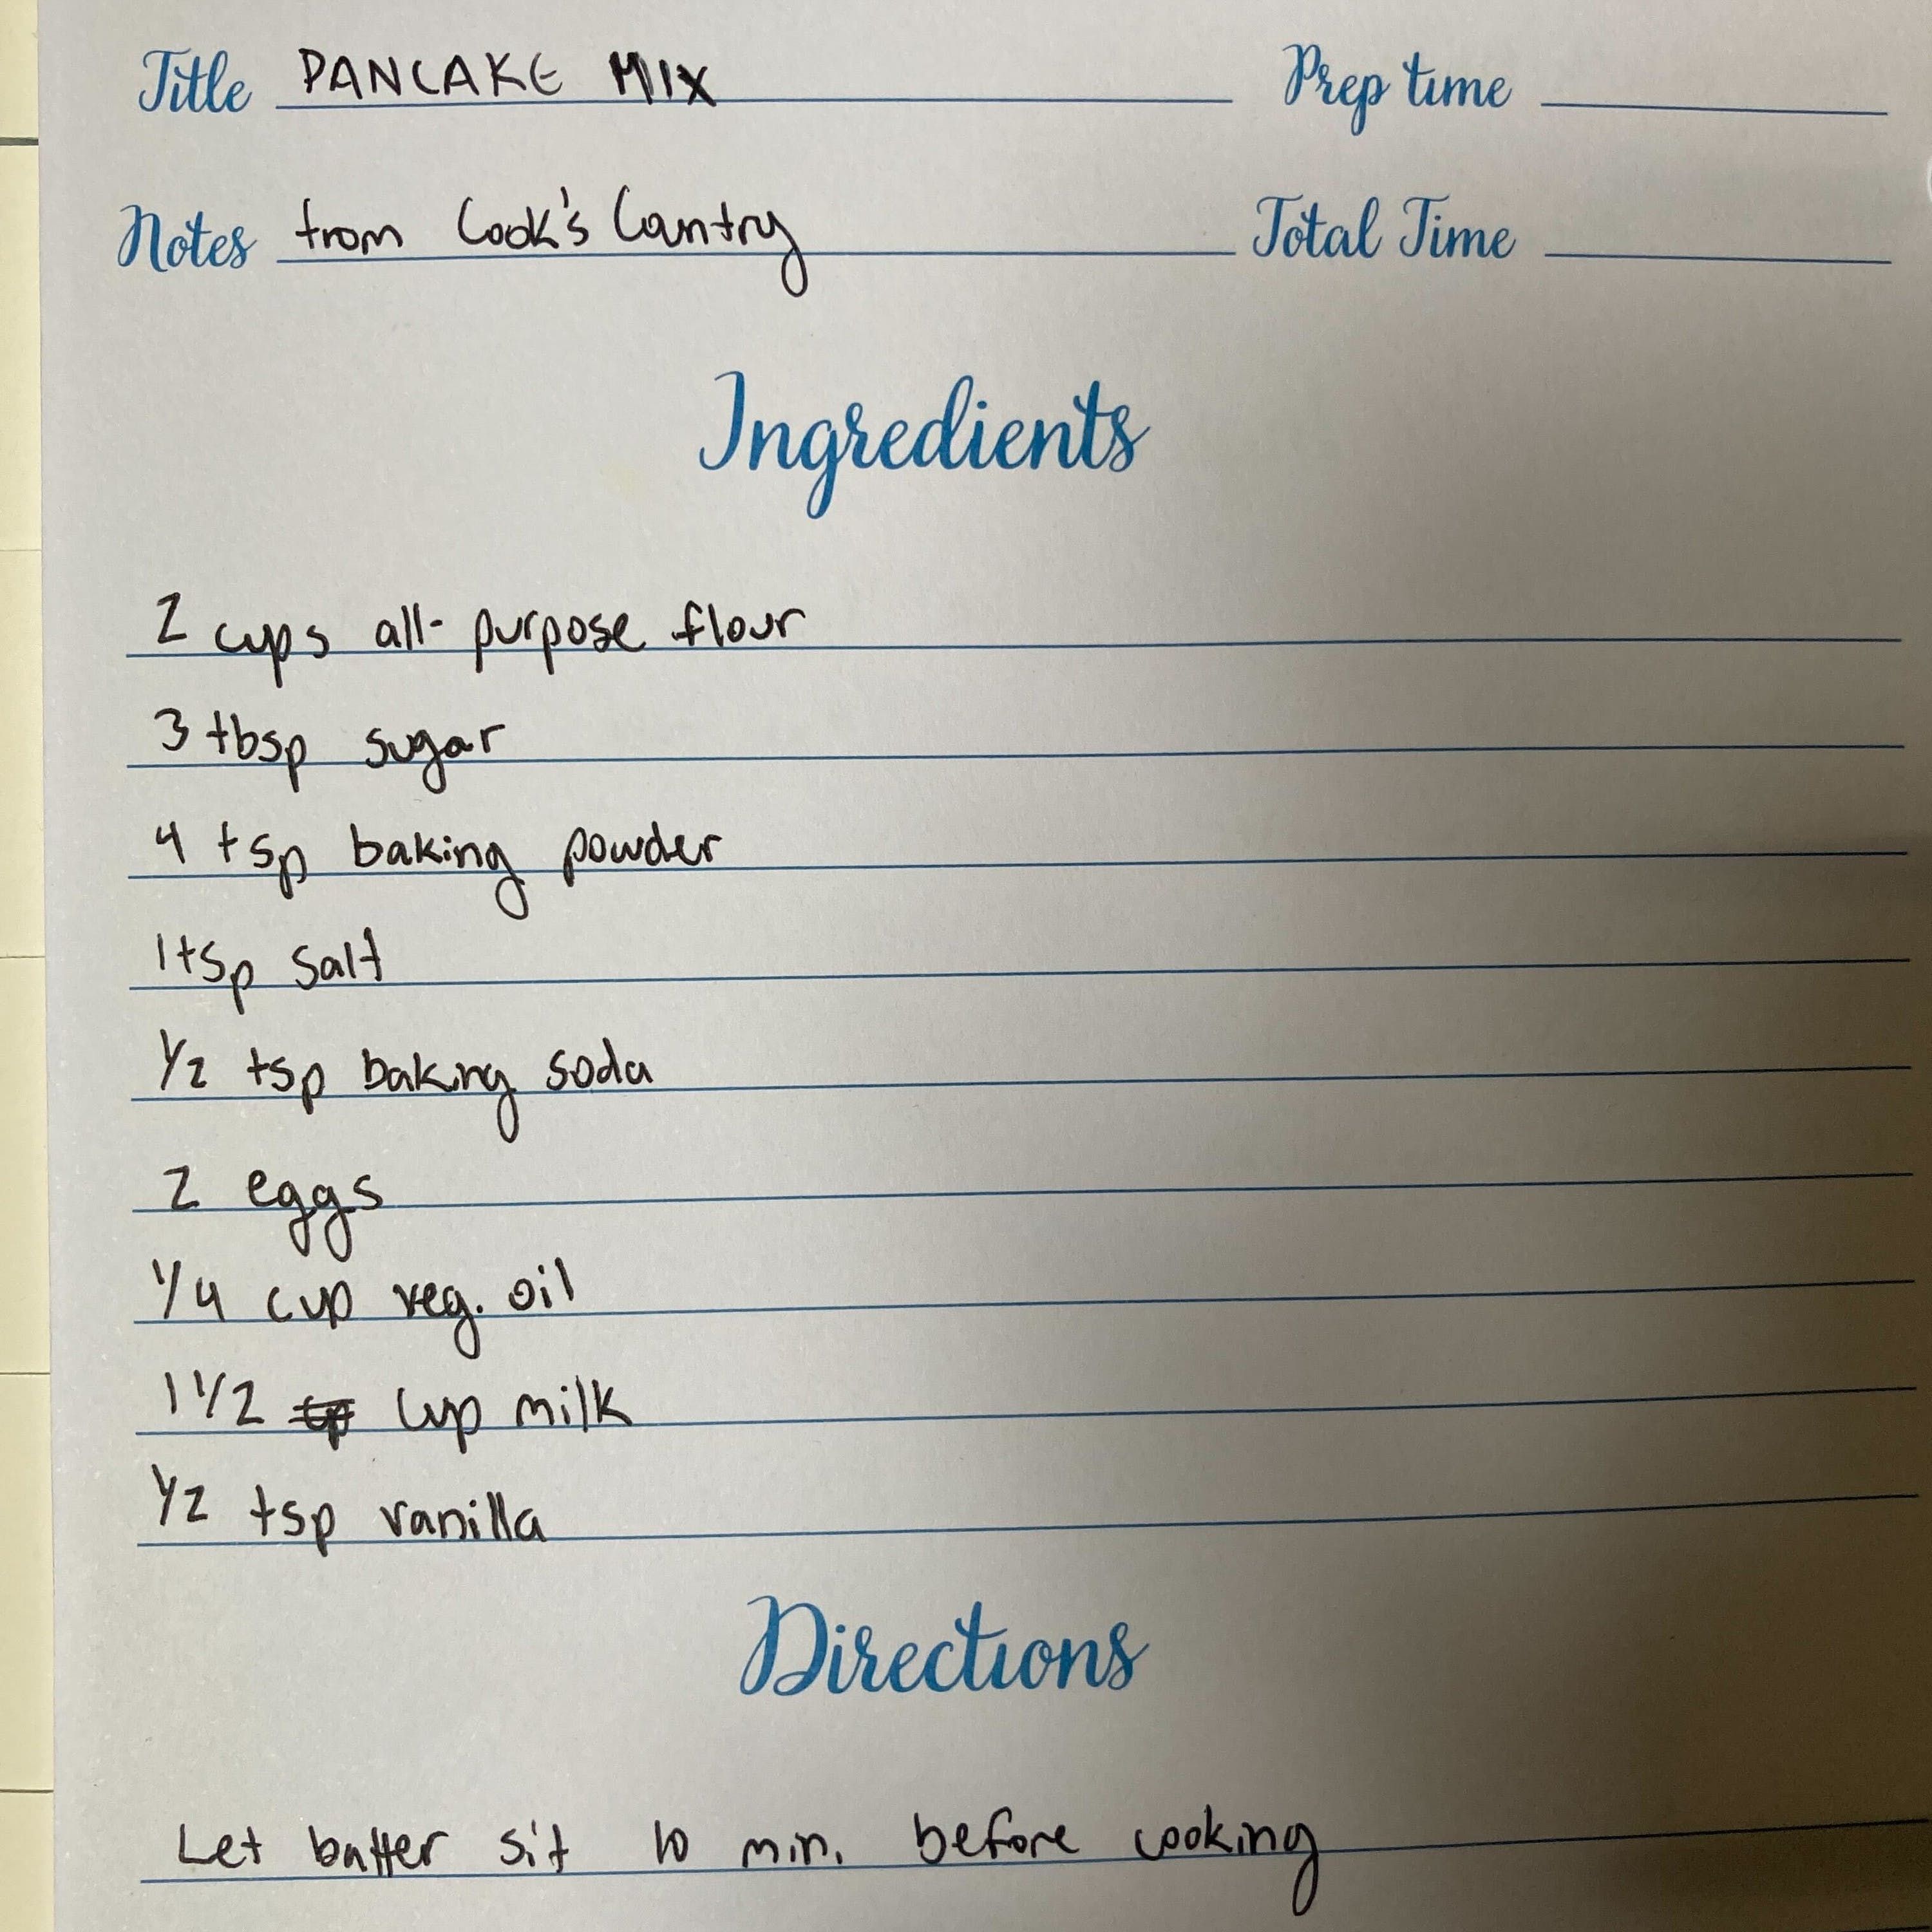 Title PANCAKE MIX Prep time
Notes from Cook's Country Total Time
Ingredients
2 cups all-purpose flour
3 tbsp sugar
4 tsp baking powder
1 tsp salt
1/2 tsp baking soda
2 eggs
1/4 cup veg. oil
1 1/2 cup milk
1/2 tsp vanilla
Directions
Let batter sit 10 min. before cooking